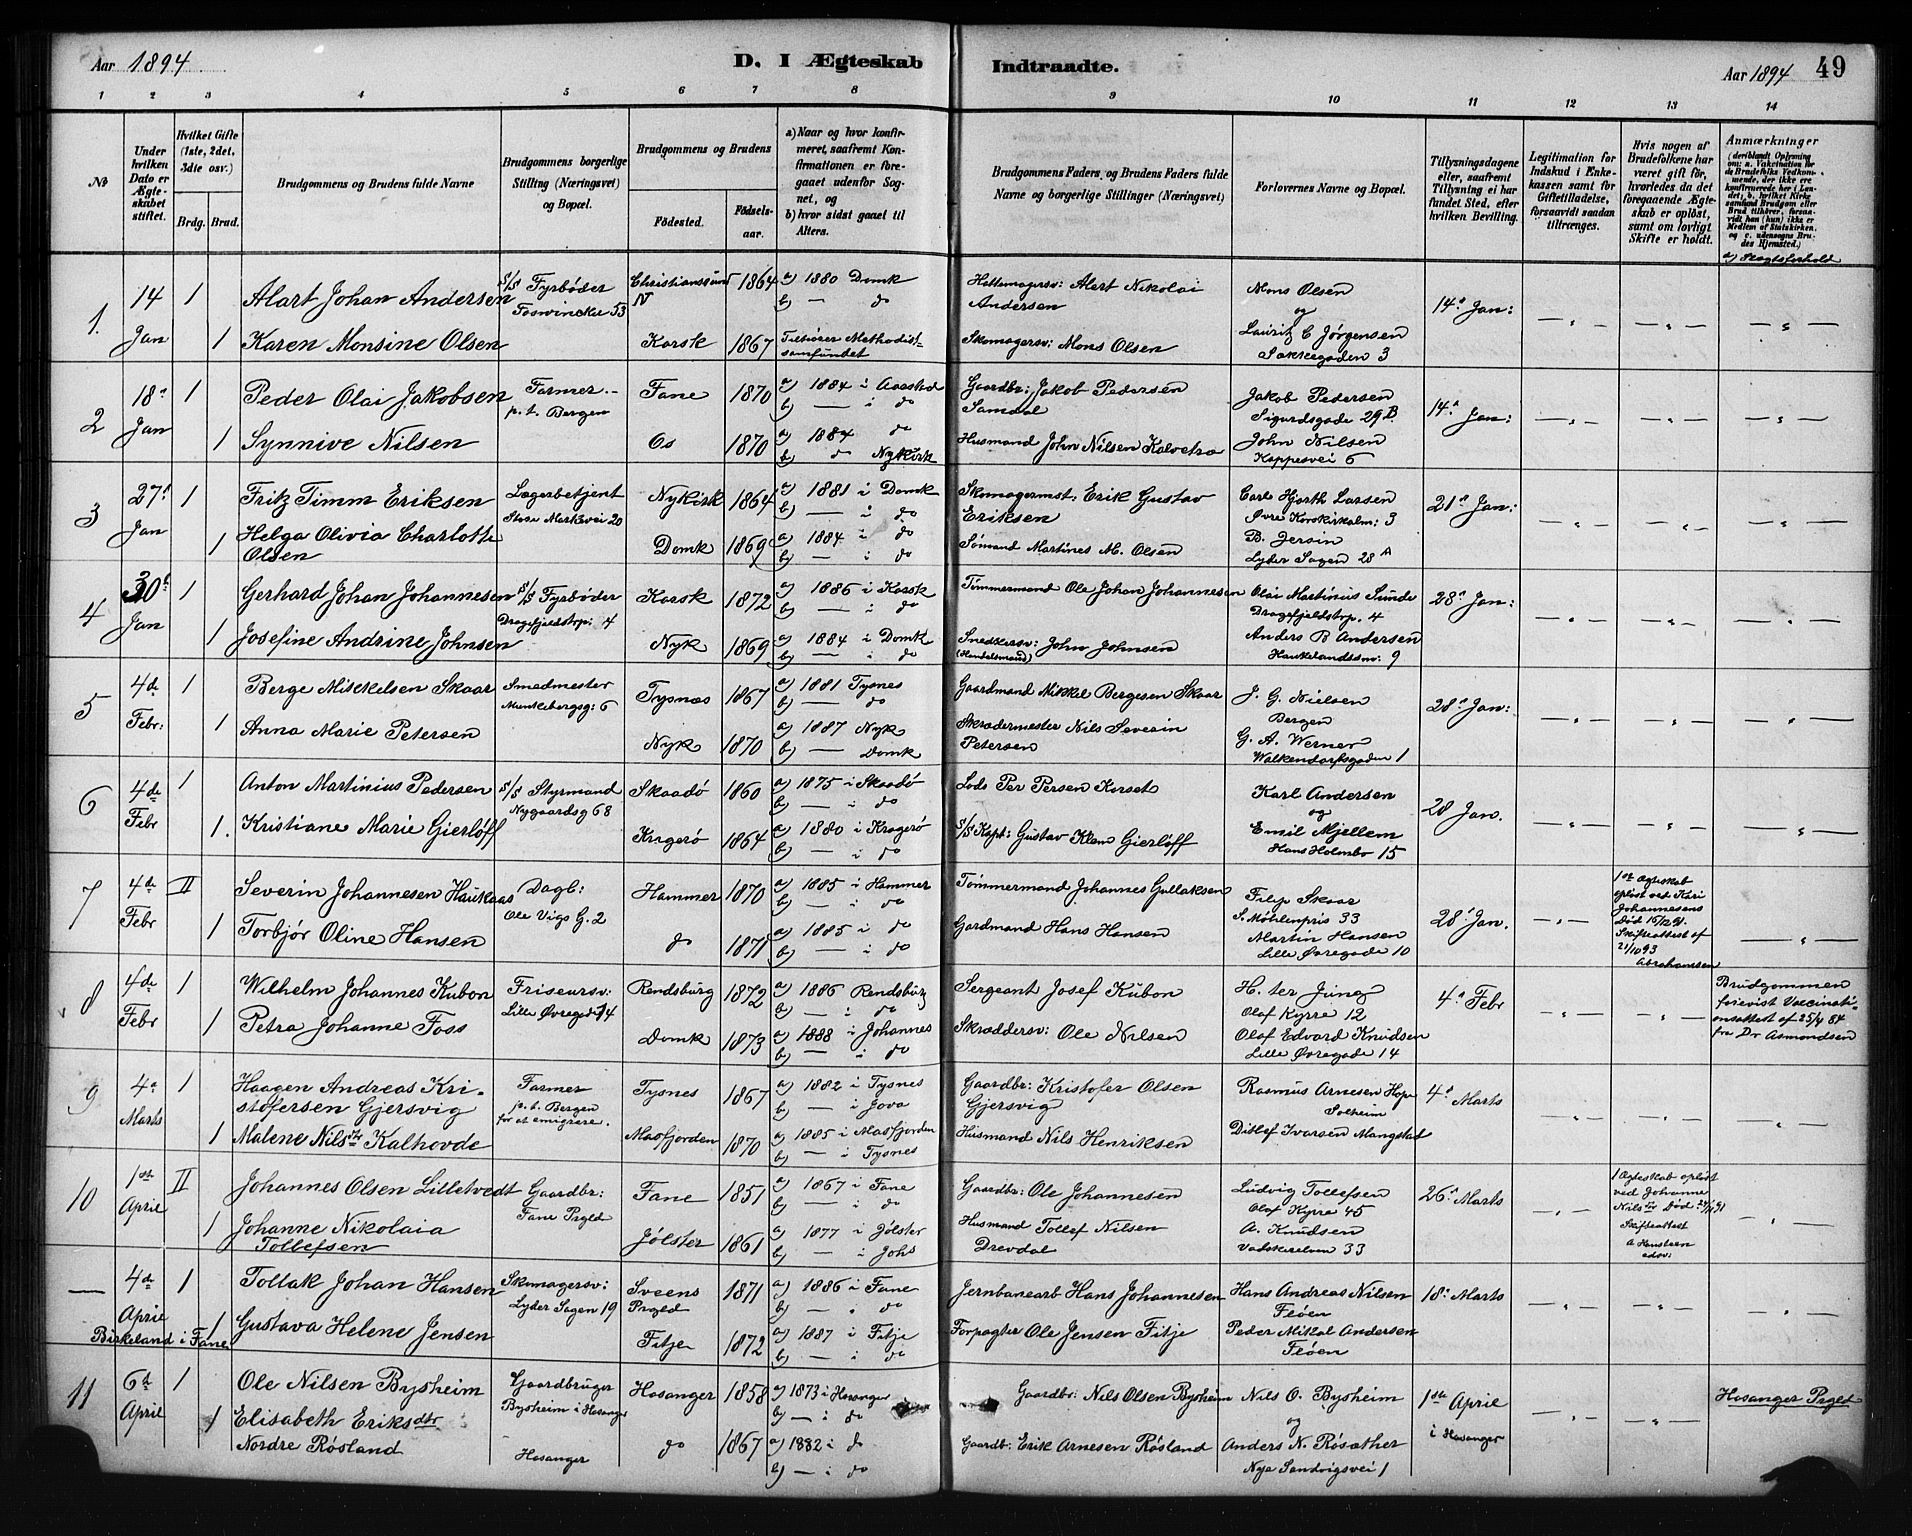 Aar 1894. D. I Ægteskab Indtraadte. Aar 1894 49
1 2 3 4 5 6 7 8 9 10 11 12 13 14
No
Under hvilken Dato er Ægteskabet stiftet.
Hvilket Gifte (1ste, 2det, 3die osv.)
Brdg. Brud.
Brudgommens og Brudens fulde Navne
Brudgommens borgerlige Stilling (Næringsvei) og Bopæl.
Brudgommens og Brudens
Födested. Födselsaar.
a) Naar og hvor konfirmeret, saafremt Konfirmationen er foregaaet udenför Sognet, og
b) hvor sidst gaaet til Alters.
Brudgommens Faders, og Brudens Faders fulde Navne og borgerlige Stillinger (Næringsvei)
Forlovernes Navne og Bopæl.
Tillysningsdagene eller, saafremt Tillysning ei har fundet Sted, efter hvilken Bevilling.
Legitimation for Indskud i Enkekassen samt for Giftetilladelse, forsaavidt saadan tiltrænges.
Hvis nogen af Brudefolkene har været gift för, hvorledes da det foregaaende Ægteskab er oplöst, samt om lovligt Skifte er holdt.
Anmærkninger
(deriblandt Oplysning om: a. Vakcination for de Brudefolks Vedkommende, der ikke ere konfirmerede her i Landet, b. hvilket Kirkesamfund Brudgom eller Brud tilhörer, forsaavidt han (hun) ikke er Medlem af Statskirken, og c. udensogns Brudes Hjemsted.)
a) Slægtsforhold
1. 14 Jan 1 Alart Johan Andersen S/S Fyrbøder Christianssund N 1864 a) 1880 Domk b) — do Hattemagersv: Alert Nikolai Andersen Mons Olsen og 14de Jan:
1 Karen Monsine Olsen Korsk 1867 Tilhører Methodistsamfundet Skomagersv: Mons Olsen Lauritz C Jørgensen
2 18de Jan 1 Peder Olai Jakobsen Farmer p. t. Bergen Fane 1870 a) 1884 i Aasstad b) — i do Gaardbr: Jakob Pedersen Samdal Jakob Pedersen Sigurdsgade 29B. 14de Jan:
1 Synnive Nilsen Os 1870 a) 1884 do b) do Nykirk Husmand John Nilsen Kalvetra John Nilsen Kappesvei 6
3 27de Jan 1 Fritz Timm Eriksen Lagerbetjent Store Markevei 20 Nykirk 1864 a) 1881 i Domk b) — i do Skomagermst: Erik Gustav Eriksen Carl Hjorth Larsen Øvre Korskirkealm: 3 21de Jan:
1 Helga Olivia Charlotte Olsen Domk 1869 a) 1884 i do b) — i do Sømand Martines M. Olsen B. Jersin Lyder Sagen 28 A
4 30te Jan 1 Gerhard Johan Johannesen S/S Fyrbøder Dragefjeldstrp: 4 Korsk 1872 a) 1886 i Korsk b) — i do Tømmermand Ole Johan Johannesen Olai Martinius Sunde Dragefjeldstrp. 4 28de Jan:
1 Josefine Andrine Johnsen Nyk 1869 a) 1884 i Domk b) — i do Snedkersv: John Johnsen (Handelsmand) Anders B Andersen Haukelandsv: 9
5 4de Febr: 1 Berge Mikkelsen Skaar Smedmester Munkebergsg: 6 Tysnæs 1867 a) 1881 Tysnes b) — do Gaardmand Mikkel Bergesen Skaar J. G. Nielsen Bergen 28de Jan:
1 Anna Marie Petersen Nyk 1870 a) 1887 Nyk b) — Domk Skrædermester Nils Severin Petersen G. A. Werner Walkendorfsgaden 1
6 4de Febr 1 Anton Martinius Pedersen S/S Styrmand Nygaardsg 68 Skaadø 1860 a) 1875 i Skaadø b) — i do Lods Per Persen Korset Karl Andersen og 28 Jan.
1. Kristiane Marie Gierløff Kragerø 1864 a) 1880 i Kragerø b) — i do S/S Kapt: Gustav Klem Gierløff Emil Mjellem Hans Holmbo 15
7 4de Febr II Severin Johannesen Haukaas Dagl: Ole Vigs G. 2 Hammer 1870 a) 1885 i Hammer b) — i do Tømmermand Johannes Gullaksen Filip Skaar S. Møhlenpris 33 28de Jan.
1 Torbjør Oline Hansen do 1871 a) 1885 i do b) — i do Gardmand Hans Hansen Martin Hansen Lille Øvregade 10
1ste Ægteskab opløst ved Kari Johannesens Død Skifteattest af 21/10 93 Abrahamsen
8 4de Febr 1 Wilhelm Johannes Kubon Friseursv: Lille Øvregade 14 Rendsburg 1872 a) 1886 Rendsburg b) — do Sergeant Josef Kubon H. ter Jung Olaf Kyrre 12 4de Febr
1 Petra Johanne Foss Domk 1873 a) 1888 i Johannes b) — i do Skræddersv: Ole Nilsen Olaf Edvard Knudsen Lille Øvregade 14
Brudgommen forevist Vaccinationsattest af 25/4 84 fra Dr Asmundsen
9 4de Marts 1 Haagen Andreas Kristofersen Gjersvig Farmer p. t. Bergen for at emigrere. Tysnes 1867 a) 1882 i Tysnes b) — i Jova Gaardbr: Kristofer Olsen Gjersvig Rasmus Arnesen Hope Solheim 4de Marts
1 Malene Nilsdtr Kalhovde Masfjorden 1870 a) 1885 i Masfjorden b) — i Tysnes Husmand Nils Henriksen Ditlef Iversen Mangstad
10 1ste April II Johannes Olsen Lilletvedt Gaardbr: Fane Prgld Fane 1851 a) 1867 i Fane b) — i do Gaardbr: Ole Johannesen Ludvig Tollefsen Olaf Kyrre 45 26de Marts
1 Johanne Nikolaia Tollefsen Jølster 1861 a) 1877 i Jølster b) — i Johs Husmand Tollef Nilsen Drevdal A. Knudsen Vaskerelven 33
1 Ægteskab opløst ved Johanne Nilsdtr Død Skifteattest
— 4de April 1 Tollak Johan Hansen Skomagersv: Lyder Sagen 19 Sveens Prgld 1871 a) 1886 i Fane b) — . do Jernbanearb Hans Johannesen Hans Andreas Nilsen Fløen 18de Marts
Birkeland i Fane 1 Gustava Helene Jensen Fitje 1872 a) 1887 i Fitje b) — i do Forpagter Ole Jensen Fitje Peder Mikal Andersen Fløen
11 6te April 1 Ole Nilsen Bysheim Gaardbruger Bysheim i Hosanger Hosanger 1858 a) 1873 i Hosanger b) — i do Gaardbr: Nils Olsen Bysheim Nils O. Bysheim og 1ste April i Hosanger Hosanger Prgld
1 Elisabeth Eriksdtr Nordre Røsland Hosanger do 1867 a) 1882 i do b) — i do Gaardb: Erik Arnesen Røsland Anders N. Røsæther Nye Sandvigsvei 1